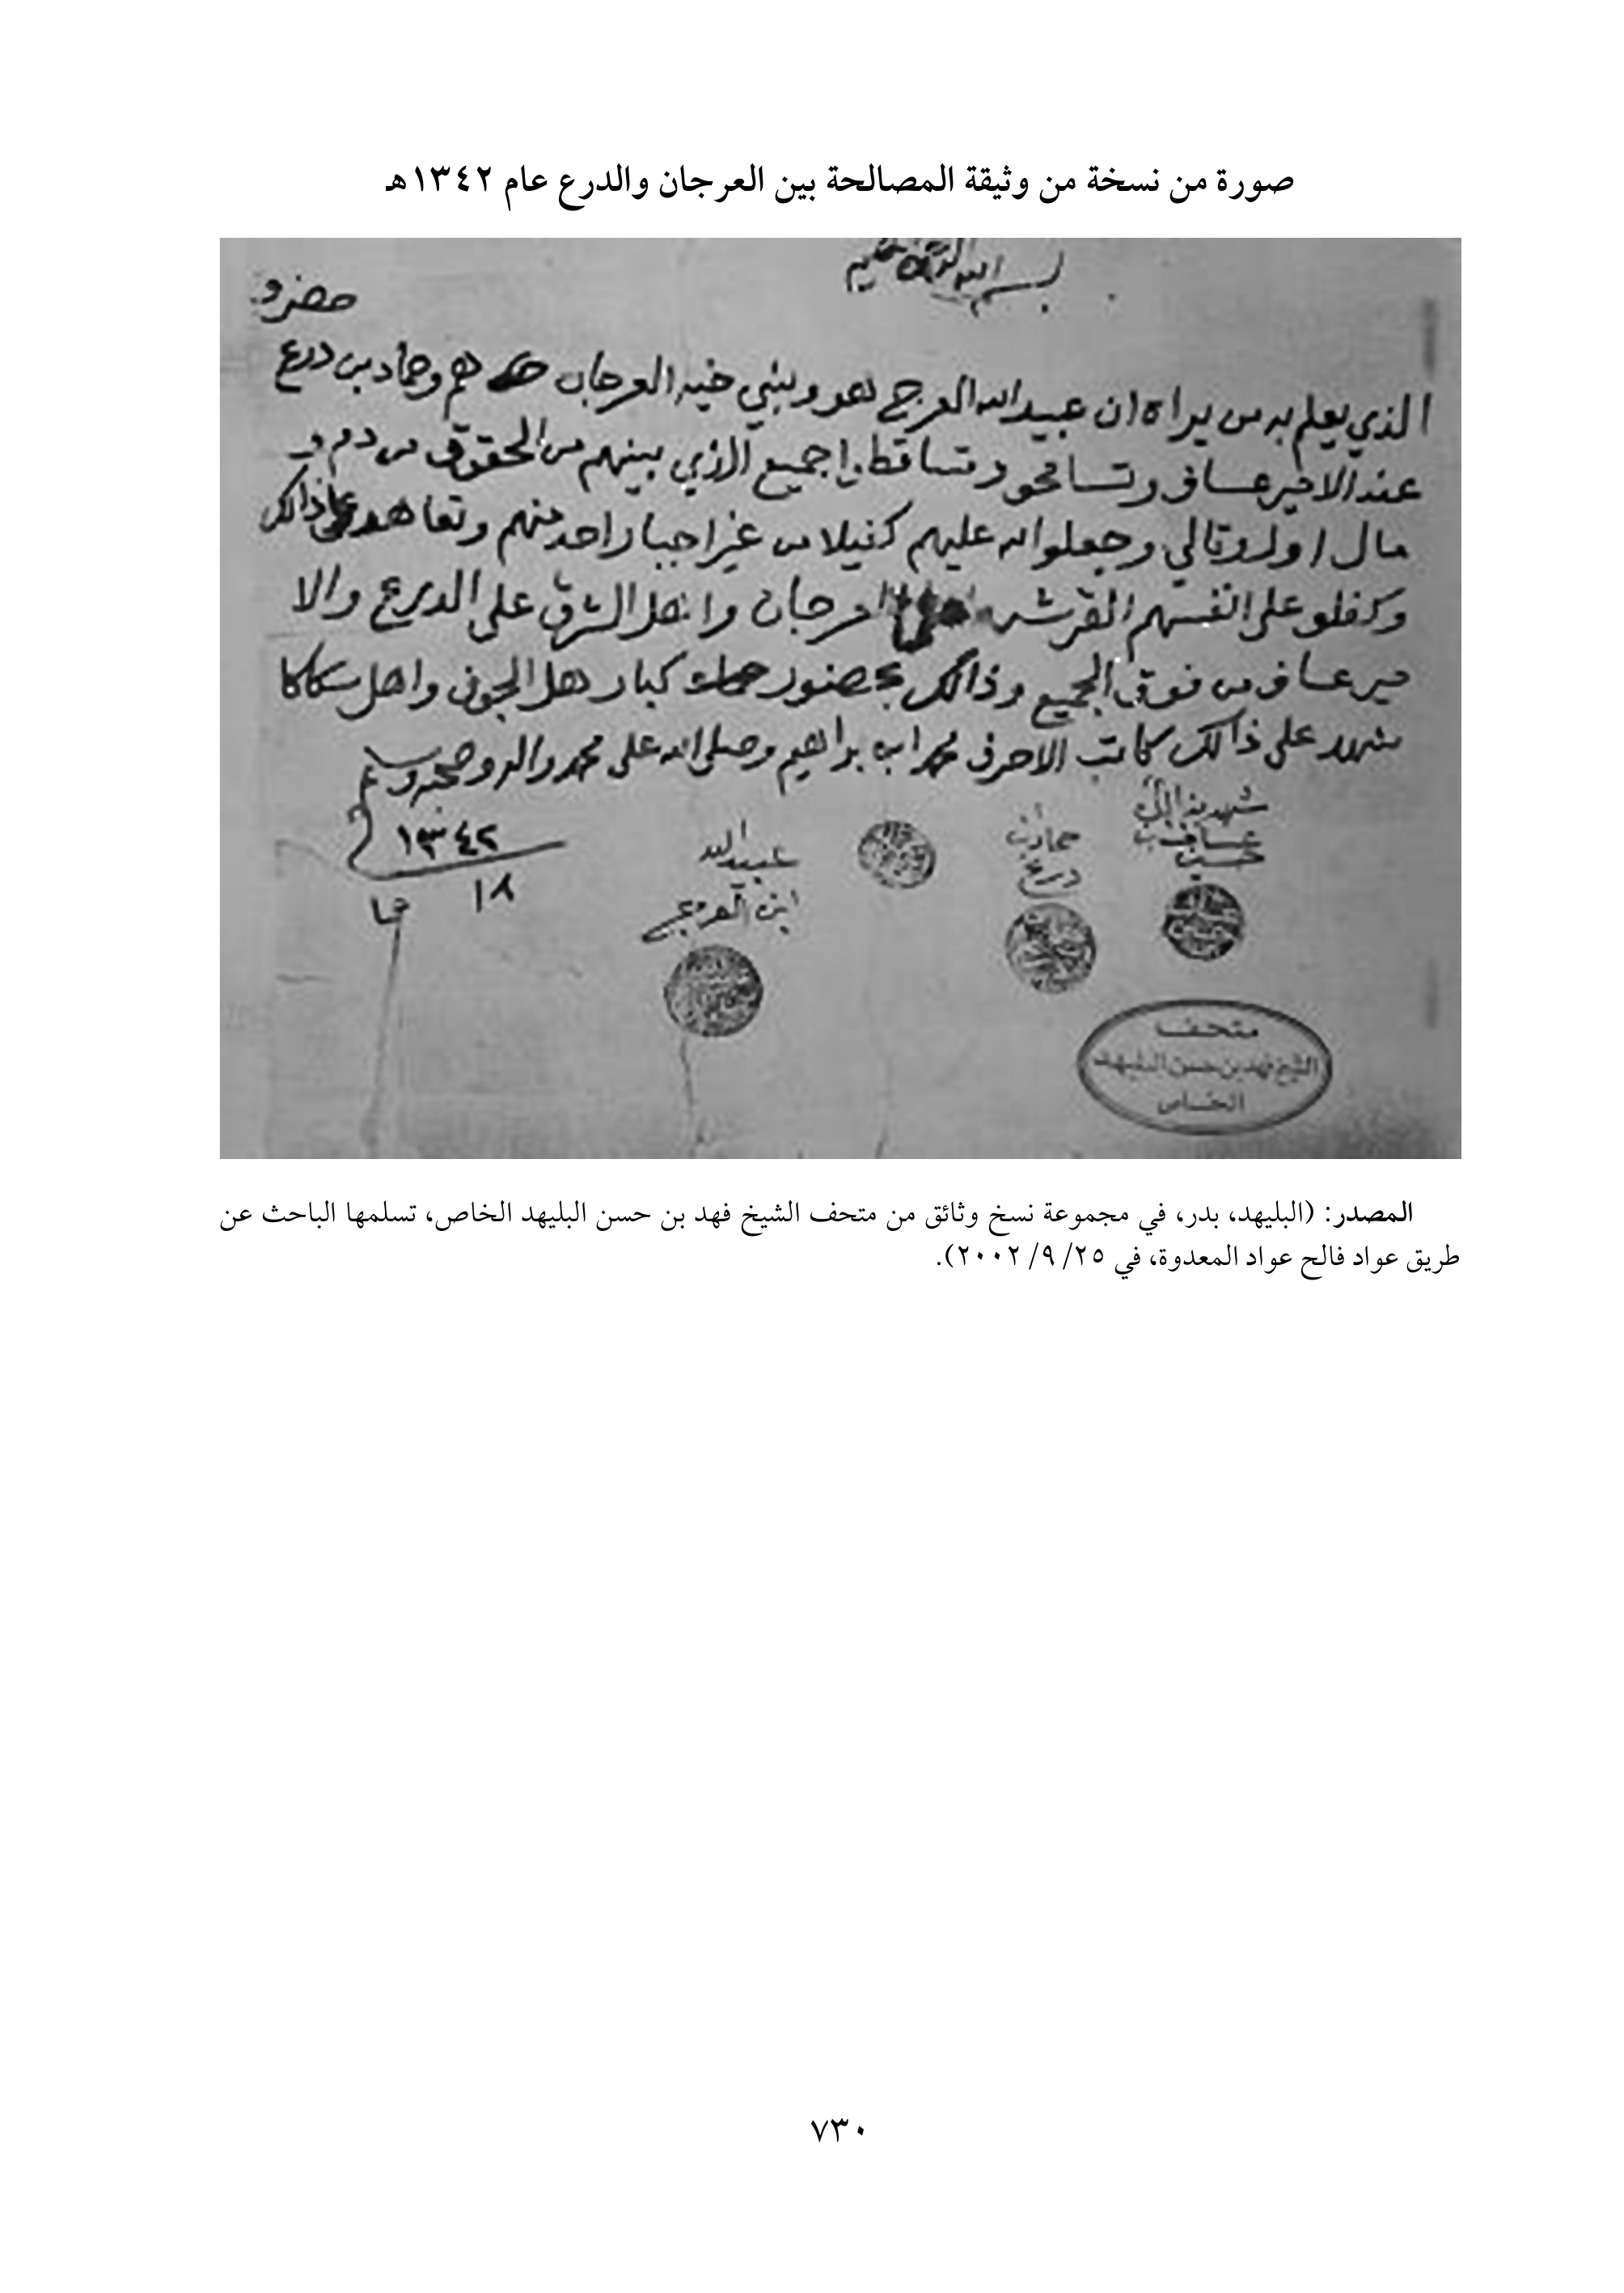 صورة من نسخة من وثيقة المصالحة بين العرجان والدرع عام ١٣٤٢هـ
حضرو
الذي يعلم به من يراه ان عبيدالله العرجي هو وبني خيه العرجان هم وحماد بن درع
عند الامير عساف وتسامحو وتساقطو اجميع الذي بينهم من الحقوق من دم و
مال اول وتالي وجعلوا الله عليهم كفيلا من غير اجبار احد منهم وتعاهدو على ذالك
وكفلو على انفسهم القرشه العرجان واهل الشرق على الدرع والا
مير عساف من فوق الجميع وذالك بحضور كبار هل الجوف واهل سكاكا
شهد على ذالك كاتب الاحرف محمد ابن براهيم وصلى الله على محمد واله وصحبه وسلم
شهد بذالك
عساف
حسين
حماد ابن
درع
عبيدالله
ابن العرجي
١٣٤٢
١٨
متحف
الشيخ فهد بن حسن البليهد
الخاص
المصدر: (البليهد، بدر، في مجموعة نسخ وثائق من متحف الشيخ فهد بن حسن البليهد الخاص، تسلمها الباحث عن
طريق عواد فالح عواد المعدوة، في ٢٥/ ٩/ ٢٠٠٢).
٧٣٠